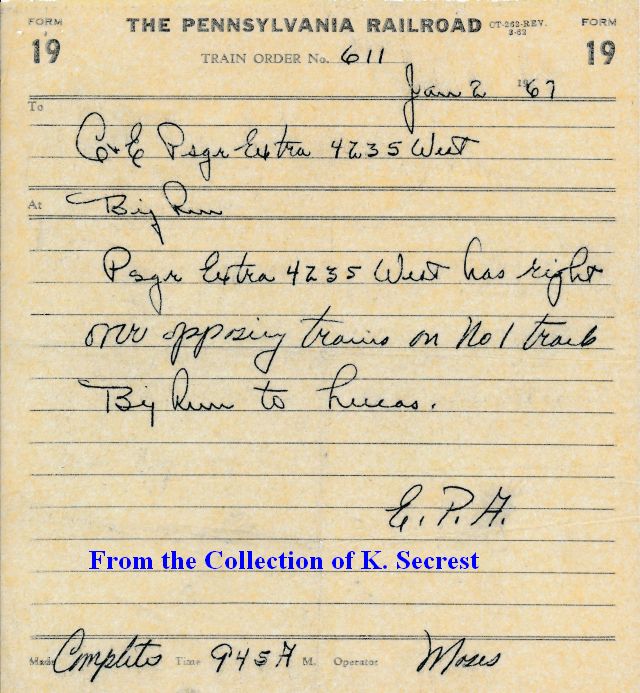 FORM THE PENNSYLVANIA RAILROAD CT-262-REV. 3-62 FORM
19 TRAIN ORDER No. 611 19
Jan 2 1967
To
C&E Psgr Extra 4235 West
At Big Run
Psgr Extra 4235 West has right
over opposing trains on No 1 track
Big Run to Lucas.
E. P. A.
From the Collection of K. Secrest
Made Complete Time 945 A M. Operator Moses